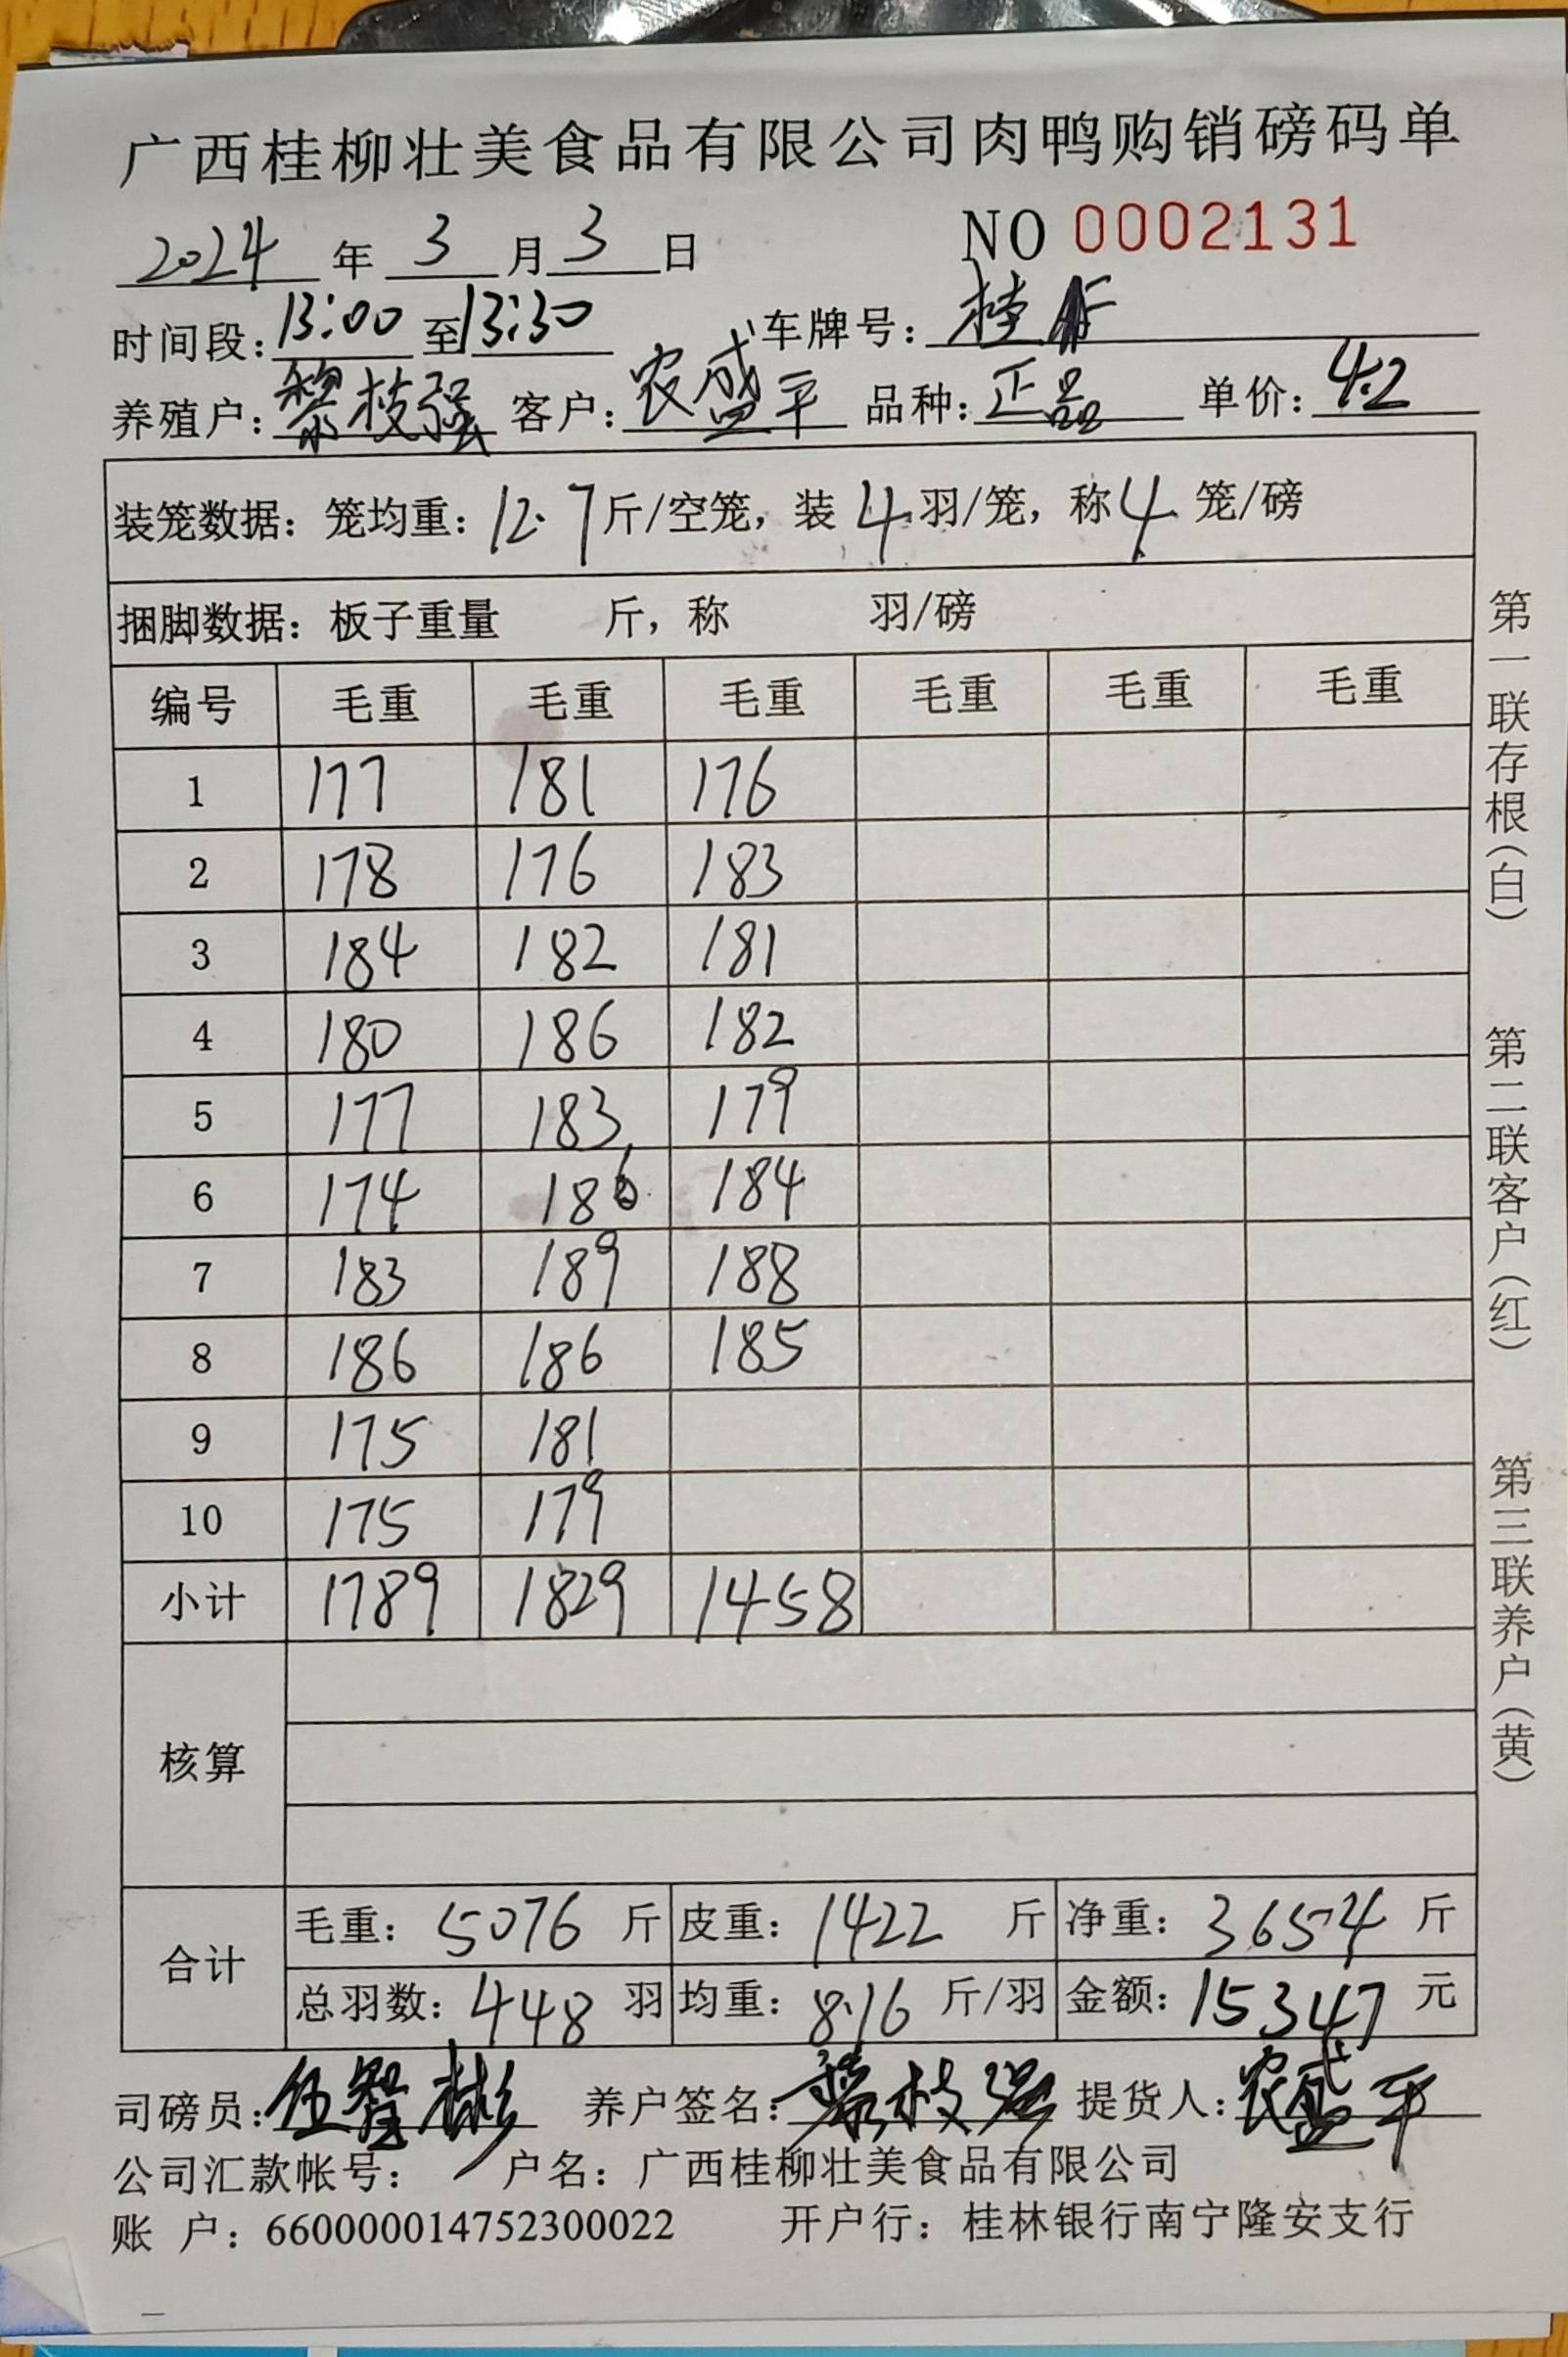 广西桂柳壮美食品有限公司肉鸭购销磅码单
2024 年 3 月 3 日 NO 0002131
时间段: 13:00 至 13:30 车牌号: 桂
养殖户: 黎枝强 客户: 农盛平 品种: 正品 单价: 4.2
装笼数据: 笼均重: 12.7 斤/空笼, 装 4 羽/笼, 称 4 笼/磅
捆脚数据: 板子重量 斤, 称 羽/磅
编号 毛重 毛重 毛重 毛重 毛重 毛重
1 177 181 176
2 178 176 183
3 184 182 181
4 180 186 182
5 177 183 179
6 174 186 184
7 183 189 188
8 186 186 185
9 175 181
10 175 179
小计 1789 1829 1458
核算
合计
毛重: 5076 斤 皮重: 1422 斤 净重: 3654 斤
总羽数: 448 羽 均重: 8.16 斤/羽 金额: 15347 元
司磅员: 伍智彬 养户签名: 黎枝强 提货人: 农盛平
公司汇款帐号: 户名: 广西桂柳壮美食品有限公司
账 户: 660000014752300022 开户行: 桂林银行南宁隆安支行
第一联存根(白) 第二联客户(红) 第三联养户(黄)